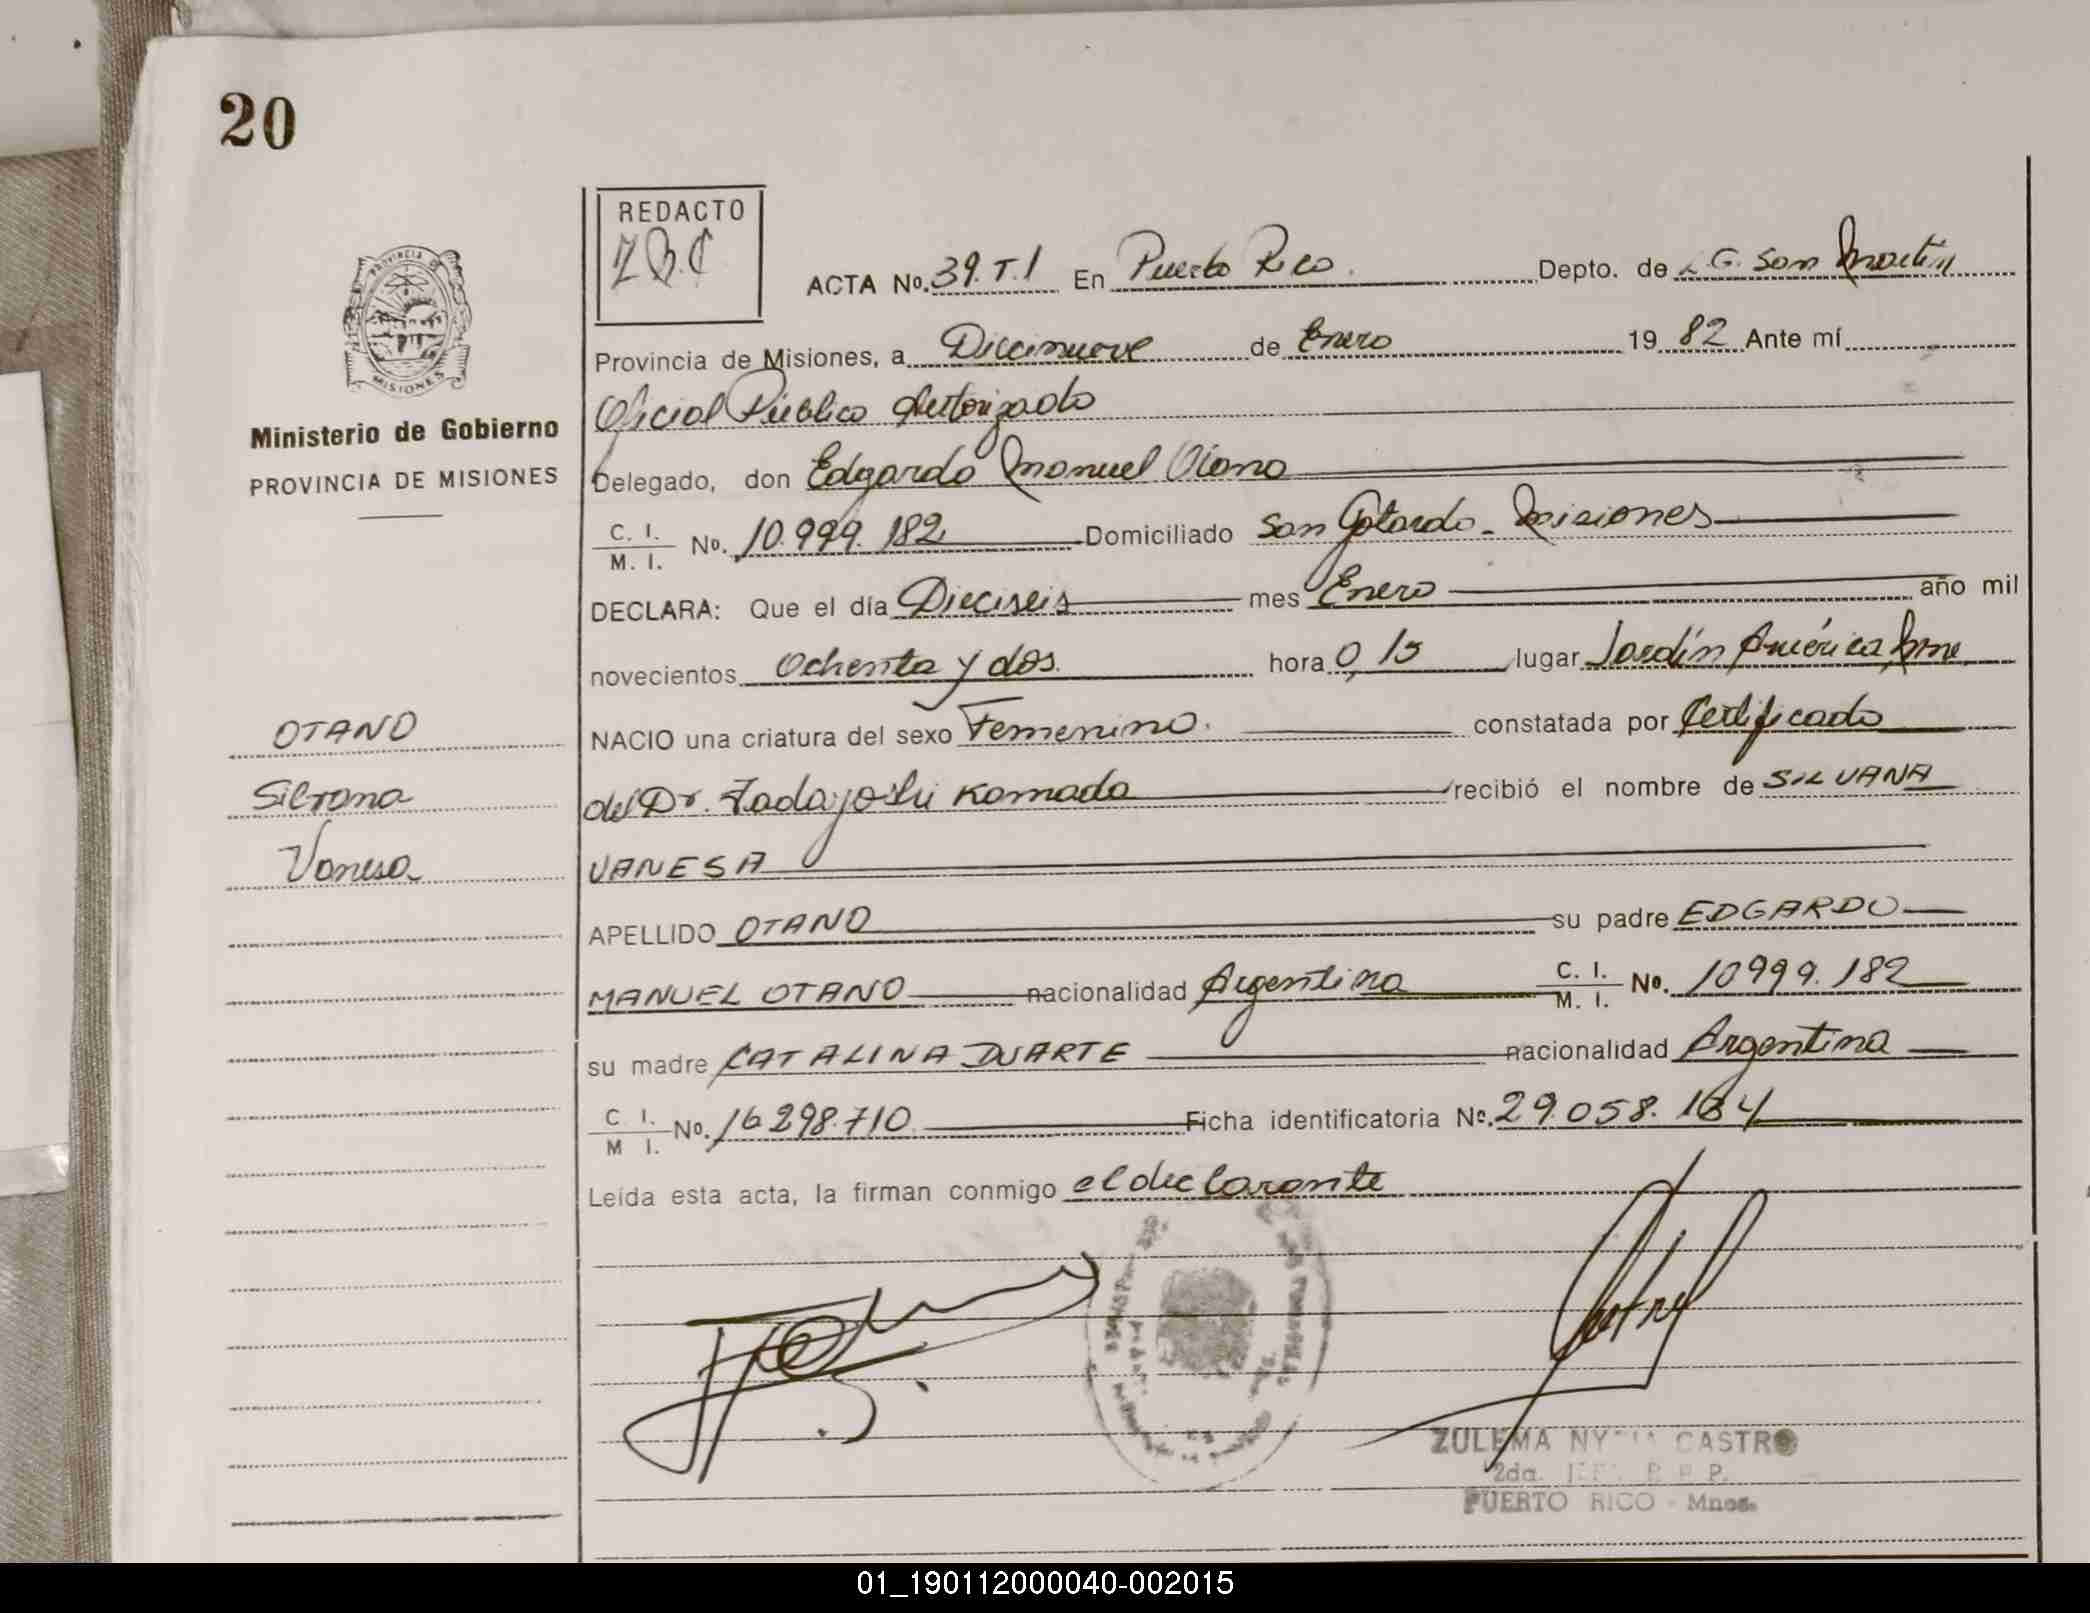 20
REDACTO
Z.B.C
ACTA No. 39. T. I En Puerto Rico. Depto. de L. G. San Martín
Provincia de Misiones, a Diecinueve de Enero 19 82 Ante mí
Oficial Público Autorizado
Delegado, don Edgardo Manuel Otano
C. I.
M. I. No. 10.999.182 Domiciliado San Gotardo - Misiones
DECLARA: Que el día Dieciseis mes Enero año mil
novecientos Ochenta y dos. hora 0,15 lugar Jardín América, Mnes
NACIO una criatura del sexo Femenino. constatada por Certificado
del Dr. Tadayoshi Kamada recibió el nombre de SILVANA
VANESA
APELLIDO OTANO su padre EDGARDO
MANUEL OTANO nacionalidad Argentina C. I.
M. I. No. 10999.182
su madre CATALINA DUARTE nacionalidad Argentina
C. I.
M I. No. 16.298.710 Ficha identificatoria No. 29.058.164
Leída esta acta, la firman conmigo el declarante
PROVINCIA DE
MISIONES
Ministerio de Gobierno
PROVINCIA DE MISIONES
OTANO
Silvana
Vanesa
ZULEMA CASTRO
2da.
PUERTO RICO - Mnes.
01_190112000040-002015